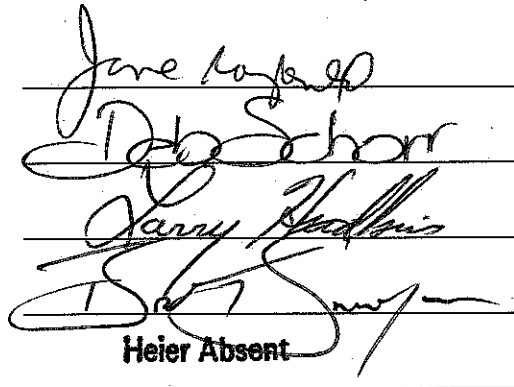 Jane Raybould
Deb Schorr
Larry Hudkins
Heier Absent